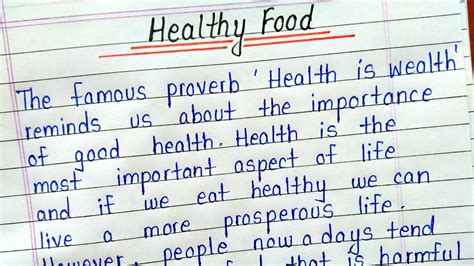 Healthy Food
The famous proverb 'Health is wealth'
reminds us about the importance
of good health. Health is the
most important aspect of life
and if we eat healthy we can
live a more prosperous life.
However, people now a days tend
that is harmful